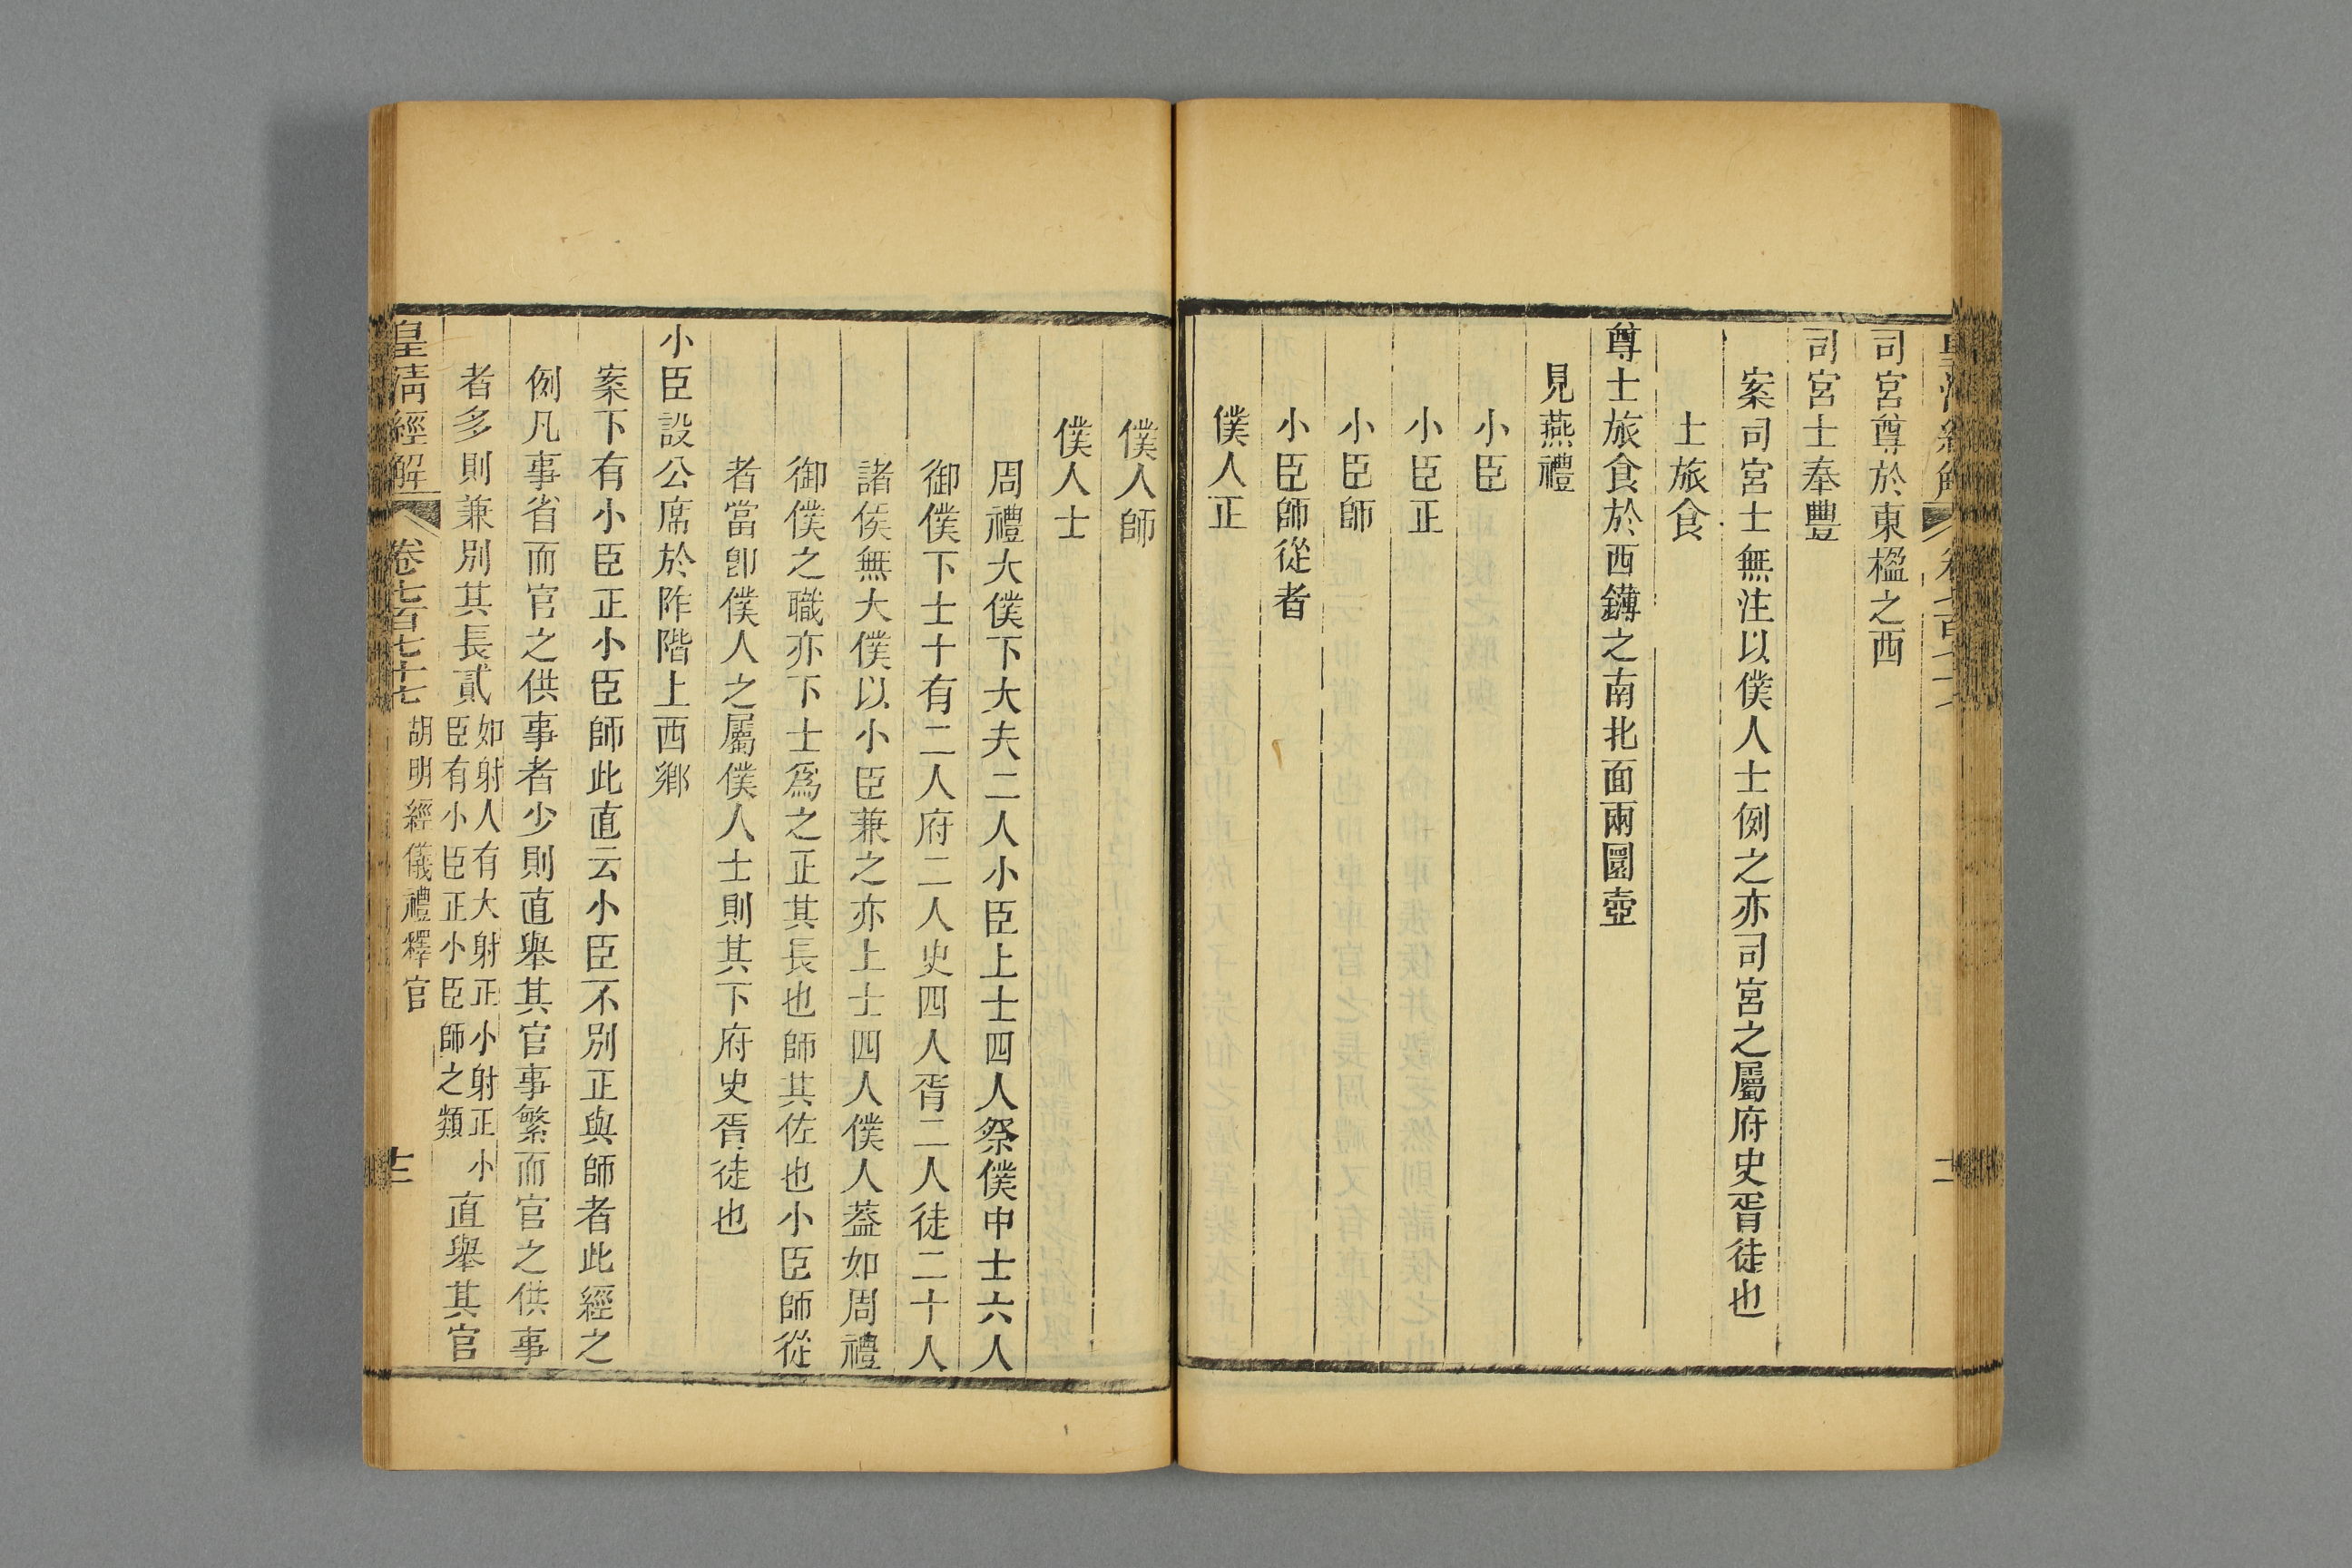 司宮尊於東楹之西
司宮士奉豐
案司宮士無注以僕人士例之亦司宮之屬府史胥徒也
士旅食
尊士旅食於西鑮之南北面兩圜壺
見燕禮
小臣
小臣正
小臣師
小臣師從者
僕人正
僕人師
僕人士
周禮大僕下大夫二人小臣上士四人祭僕中士六人
御僕下士十有二人府二人史四人胥二人徒二十人
諸侯無大僕以小臣兼之亦上士四人僕人蓋如周禮
御僕之職亦下士爲之正其長也師其佐也小臣師從
者當卽僕人之屬僕人士則其下府史胥徒也
小臣設公席於阼階上西鄉
案下有小臣正小臣師此直云小臣不別正與師者此經之
例凡事省而官之供事者少則直舉其官事繁而官之供事
者多則兼別其長貳如射人有大射正小射正小臣有小臣正小臣師之類直舉其官
皇清經解
卷七百七十七
胡明經儀禮釋官